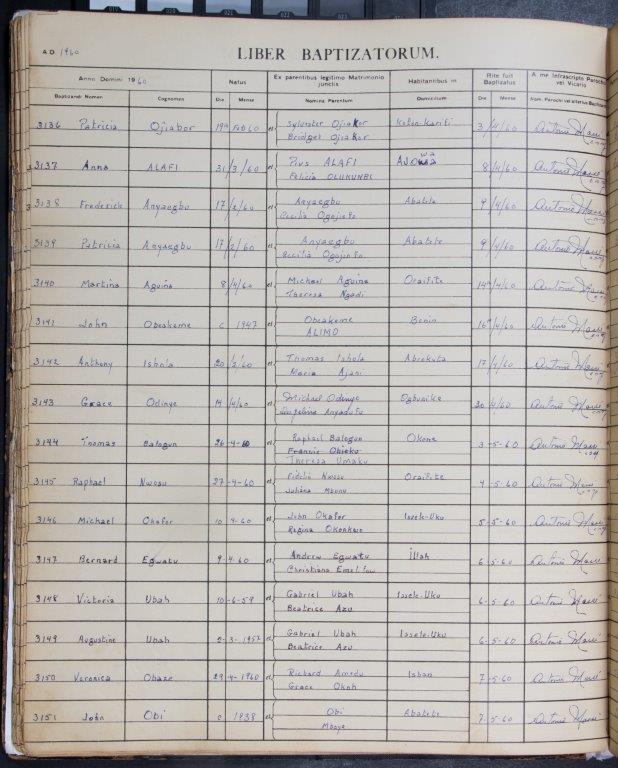 A D 1960
LIBER BAPTIZATORUM.
Anno Domini 1960 Natus Ex parentibus legitimo Matrimonio junctis Habitantibus in Rite fuit Baptizatus A me infrascripto Parocho vel Vicario
Baptizandi Nomen Cognomen Die Mense Nomina Parentum Domicilium Die Mense Nom. Parochi vel alterius Baptizantis
3136 Patricia Ojiabor 19th Feb 60 et Sylvester Ojiakor 3/4/60 Antonio
Bridget Ojiakor
3137 Anna ALAFI 31/3/60 et Pius ALAFI 8/4/60 Antonio
Felicia OLUKUNBI
3138 Frederick Anyaegbu 17/2/60 et Anyaegbu Abatete 9/4/60 Antonio
Cecilia Ogojiofo
3139 Patricia Anyaegbu 17/2/60 et Anyaegbu Abatete 9/4/60 Antonio
Cecilia Ogojiofo
3140 Martina Aguina 8/4/60 et Michael Aguina Oraifite 14th/4/60 Antonio
Theresa Ngadi
3141 John Obeakeme c 1947 et Obeakeme Benin 16th/4/60 Antonio
ALIMO
3142 Anthony Ishola 20/2/60 et Thomas Ishola Abeokuta 17/4/60 Antonio
Maria Ajani
3143 Grace Odinye 14/4/60 et Michael Odinye Ogbunike 30/4/60 Antonio
3144 Thomas Balogun 26-4-60 et Raphael Balogun Okene 3-5-60 Antonio
Francis Obieku
Theresa Umaku
3145 Raphael Nwosu 27-4-60 et Fidelis Nwosu Oraifite 4-5-60 Antonio
Juliana Mbonu
3146 Michael Okafor 10 4-60 et John Okafor Issele-Uku 5-5-60 Antonio
Regina Okonkwo
3147 Bernard Egwatu 9 4 60 et Andrew Egwatu Illah 6-5-60 Antonio
Christiana
3148 Victoria Ubah 10-6-59 et Gabriel Ubah Issele-Uku 6-5-60 Antonio
Beatrice Azu
3149 Augustine Ubah 2-3-1957 et Gabriel Ubah Issele-Uku 6-5-60 Antonio
Beatrice Azu
3150 Veronica Obaze 29 4-1960 et Richard Amedu Ishan 7-5-60 Antonio
Grace Okoh
3151 John Obi c 1938 et Obi Abatete 7-5-60 Antonio
Mboye